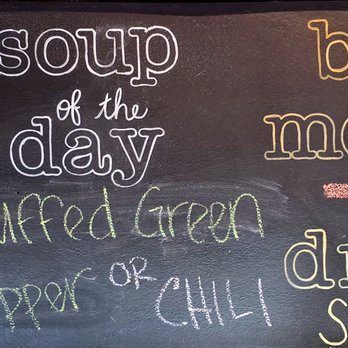 soup
of the
day
uffed Green
pper OR CHILI
b
mo
di
S